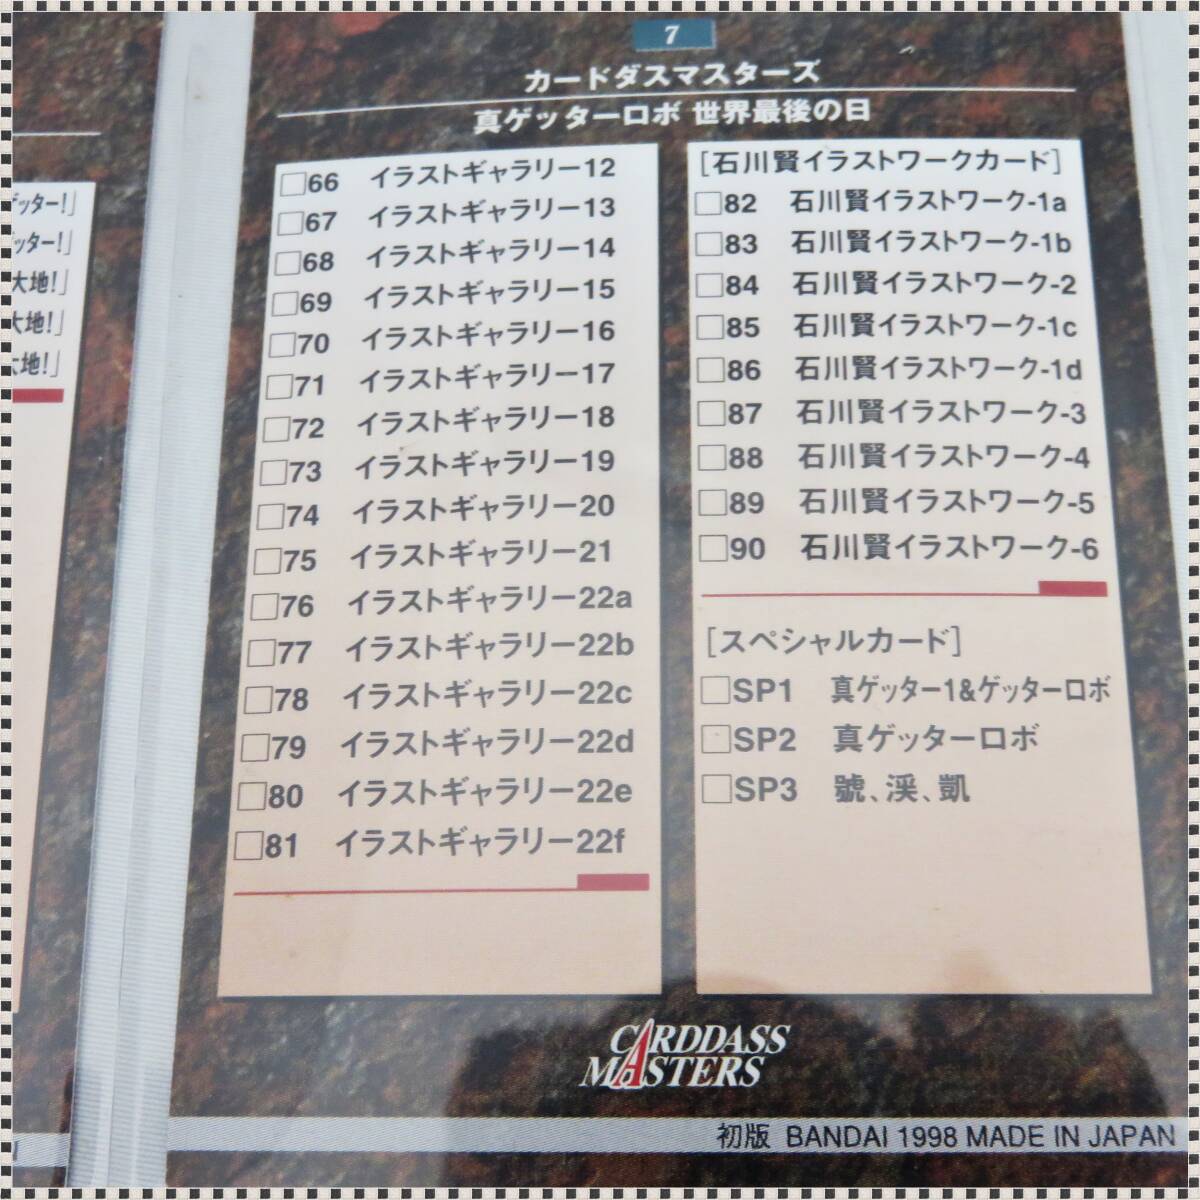 ゲッター!」
ゲッター!」
大地!」
大地!」
大地!」
7
カードダスマスターズ
真ゲッターロボ 世界最後の日
□66 イラストギャラリー12
□67 イラストギャラリー13
□68 イラストギャラリー14
□69 イラストギャラリー15
□70 イラストギャラリー16
□71 イラストギャラリー17
□72 イラストギャラリー18
□73 イラストギャラリー19
□74 イラストギャラリー20
□75 イラストギャラリー21
□76 イラストギャラリー22a
□77 イラストギャラリー22b
□78 イラストギャラリー22c
□79 イラストギャラリー22d
□80 イラストギャラリー22e
□81 イラストギャラリー22f
[石川賢イラストワークカード]
□82 石川賢イラストワーク-1a
□83 石川賢イラストワーク-1b
□84 石川賢イラストワーク-2
□85 石川賢イラストワーク-1c
□86 石川賢イラストワーク-1d
□87 石川賢イラストワーク-3
□88 石川賢イラストワーク-4
□89 石川賢イラストワーク-5
□90 石川賢イラストワーク-6
[スペシャルカード]
□SP1 真ゲッター1&ゲッターロボ
□SP2 真ゲッターロボ
□SP3 號、渓、凱
CARDDASS
MASTERS
初版 BANDAI 1998 MADE IN JAPAN